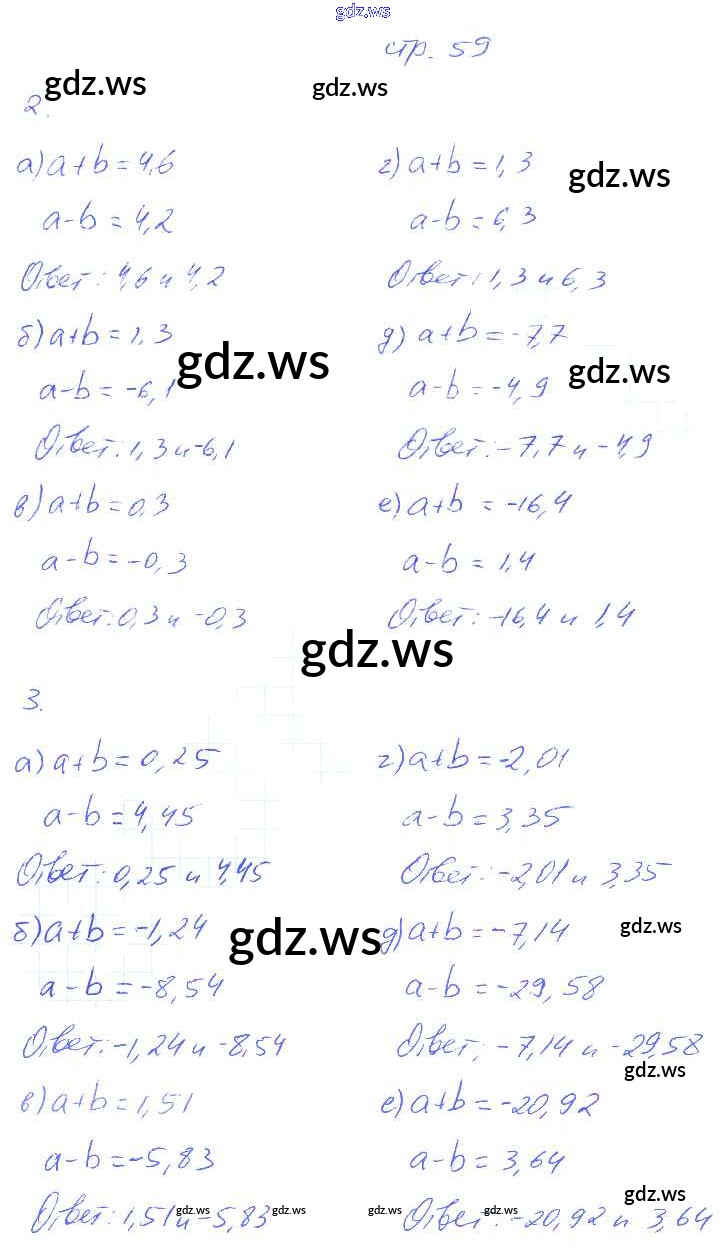 gdz.ws
стр. 59
gdz.ws
gdz.ws
2.
а) a+b = 4,6
a-b = 4,2
Ответ: 4,6 и 4,2
б) a+b = 1,3
a-b = -6,1
Ответ: 1,3 и -6,1
в) a+b = 0,3
a-b = -0,3
Ответ: 0,3 и -0,3
г) a+b = 1,3
a-b = 6,3
Ответ: 1,3 и 6,3
д) a+b = -7,7
a-b = -4,9
Ответ: -7,7 и -4,9
е) a+b = -16,4
a-b = 1,4
Ответ: -16,4 и 1,4
gdz.ws
gdz.ws
gdz.ws
gdz.ws
3.
а) a+b = 0,25
a-b = 4,45
Ответ: 0,25 и 4,45
б) a+b = -1,24
a-b = -8,54
Ответ: -1,24 и -8,54
в) a+b = 1,51
a-b = -5,83
Ответ: 1,51 и -5,83
г) a+b = -2,01
a-b = 3,35
Ответ: -2,01 и 3,35
д) a+b = -7,14
a-b = -29,58
Ответ: -7,14 и -29,58
е) a+b = -20,92
a-b = 3,64
Ответ: -20,92 и 3,64
gdz.ws
gdz.ws
gdz.ws
gdz.ws
gdz.ws gdz.ws gdz.ws gdz.ws